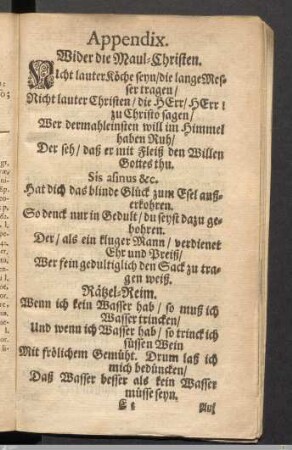 Appendix.
Wider die Maul-Christen.
Nicht lauter Köche seyn/die lange Mes-
ser tragen/
Nicht lauter Christen/ die HErr/ HErr!
zu Christo sagen/
Wer dermahleinsten will im Himmel
haben Ruh/
Der seh/ daß er mit Fleiß den Willen
Gottes thu.
Sis asinus &c.
Hat dich das blinde Glück zum Esel auß-
erkohren.
So denck nur in Gedult/ du seyst dazu ge-
bohren.
Der/ als ein kluger Mann/ verdienet
Ehr und Preiß/
Wer fein gedultiglich den Sack zu tra-
gen weiß.
Rätzel-Reim.
Wenn ich kein Wasser hab/ so muß ich
Wasser trincken/
Und wenn ich Wasser hab/ so trinck ich
süssen Wein
Mit frölichem Gemüht. Drum laß ich
mich bedüncken/
Daß Wasser besser als kein Wasser
müsse seyn.